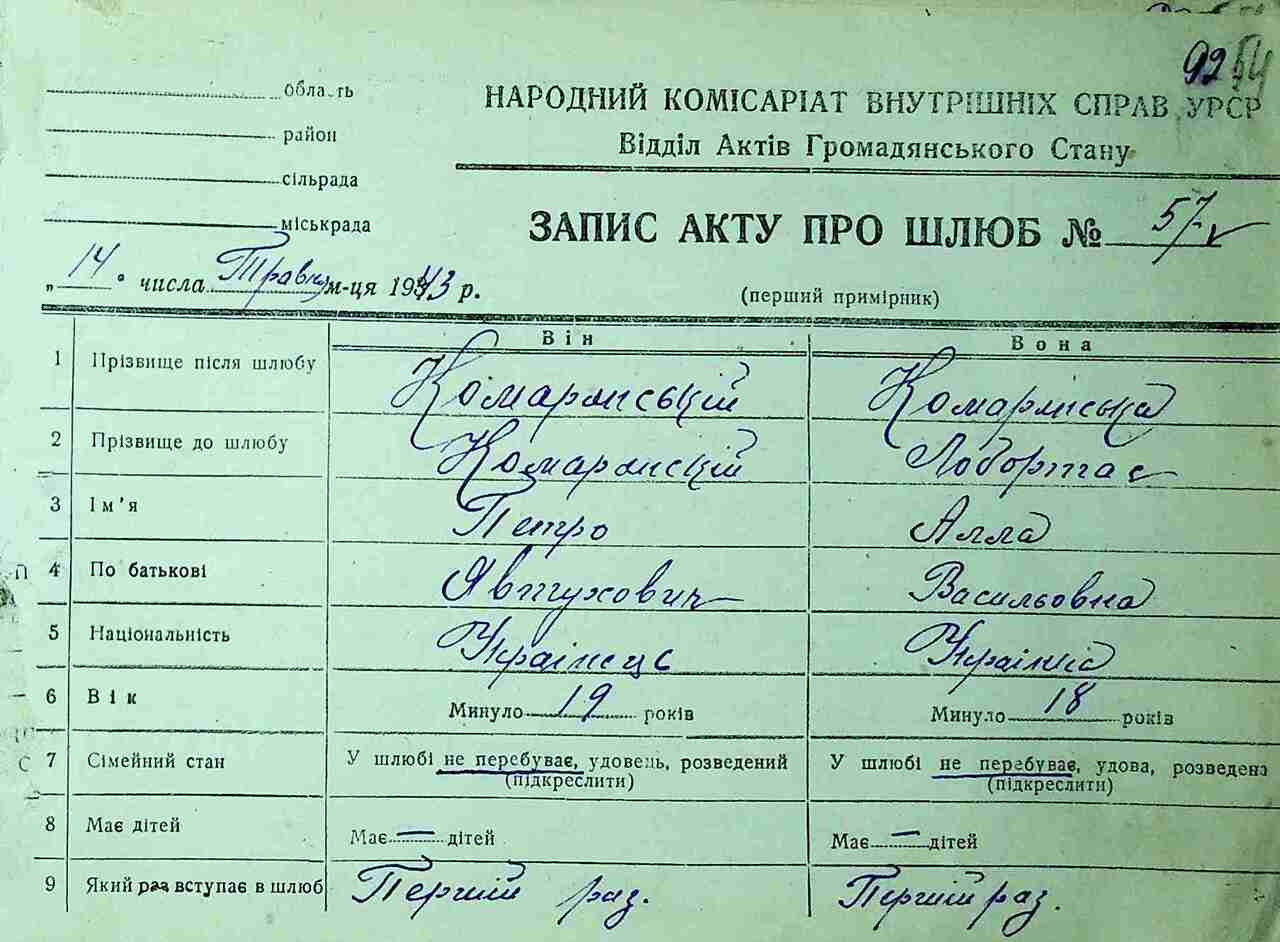 92
область
район
сільрада
міськрада
НАРОДНИЙ КОМІСАРІАТ ВНУТРІШНІХ СПРАВ УРСР
Відділ Актів Громадянського Стану
ЗАПИС АКТУ ПРО ШЛЮБ № 57
„14" числа Травня м-ця 1943 р.
(перший примірник)
Він Вона
1 Прізвище після шлюбу Комаринський Комаринська
2 Прізвище до шлюбу Комаринскій Лобортас
3 Ім'я Петро Алла
4 По батькові Явтухович Васильовна
5 Національність Українець Українка
6 Вік Минуло 19 років Минуло 18 років
7 Сімейний стан У шлюбі не перебуває, удовець, розведений У шлюбі не перебуває, удова, розведена
(підкреслити) (підкреслити)
8 Має дітей Має — дітей Має — дітей
9 Який раз вступає в шлюб Перший раз. Перший раз.